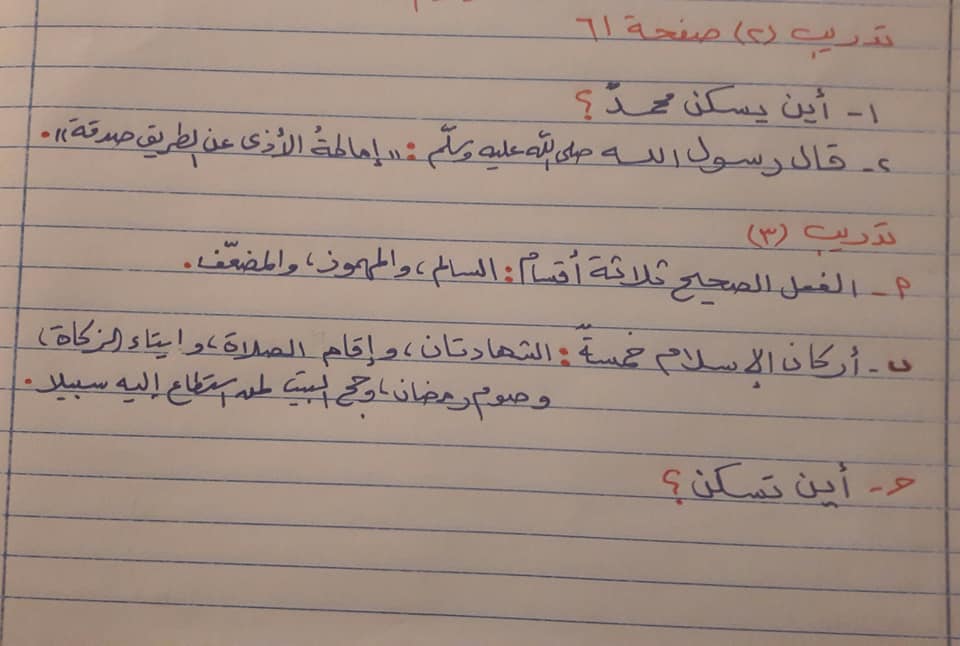 تدريب (٢) صفحة ٦١
١- أين يسكن محمدٌ؟
٢- قال رسول الله صلى الله عليه وسلّم: «إماطةُ الأذى عن الطريق صدقة».
تدريب (٣)
أ- الفعل الصحيح ثلاثة أقسامٌ: السالم، والمهموز، والمضعّف.
ب- أركان الإسلام خمسةٌ: الشهادتان، وإقام الصلاة، وايتاء الزكاة،
وصوم رمضان، وحج البيت لمن استطاع إليه سبيلا.
ج- أين تسكن؟